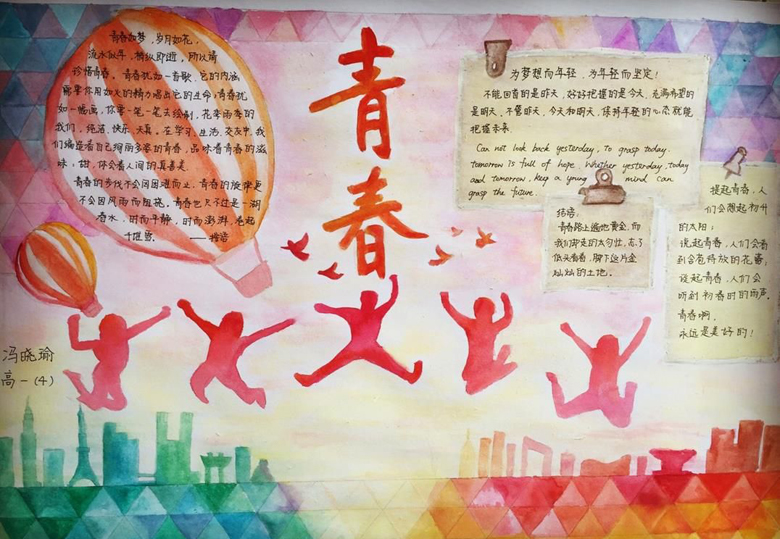 青春如梦，岁月如花，
流水似年，稍纵即逝，所以请
珍惜青春，青春犹如一首歌，它的内涵
需要你用如火的精力唱出它的生命，青春犹
如一幅画，你要一笔一笔去绘制，花季雨季的
我们，纯洁，快乐，天真，在学习，生活，交友中，我
们编造着自己绚丽多姿的青春，品味着青春的滋
味，甜，体会着人间的真善美
青春的步伐不会因困难而止，青春的旋律更
不会因风雨而阻挠，青春也只不过是一湖
春水，时而平静，时而澎湃，卷起
千堆雪。
青春
为梦想而年轻，为年轻而坚定！
不能回首的是昨天，好好把握的是今天，充满希望的
是明天，不管昨天，今天和明天，保持年轻的心态就能
把握未来
Can not look back yesterday, to grasp today.
tomorrow is full of hope. Whether yesterday, today
and tomorrow, keep a young mind can
grasp the future
结语：
青春路上遍地黄金，而
我们却走的太匆忙，忘了
低头看看，脚下这片金
灿灿的土地。
提起青春，人
们会想起初升
的太阳；
说起青春，人们会看
到含苞待放的花蕾，
谈起青春，人们会
听到初春时的雨声，
青春啊，
永远是美好的！
冯晓瑜
高一（4）